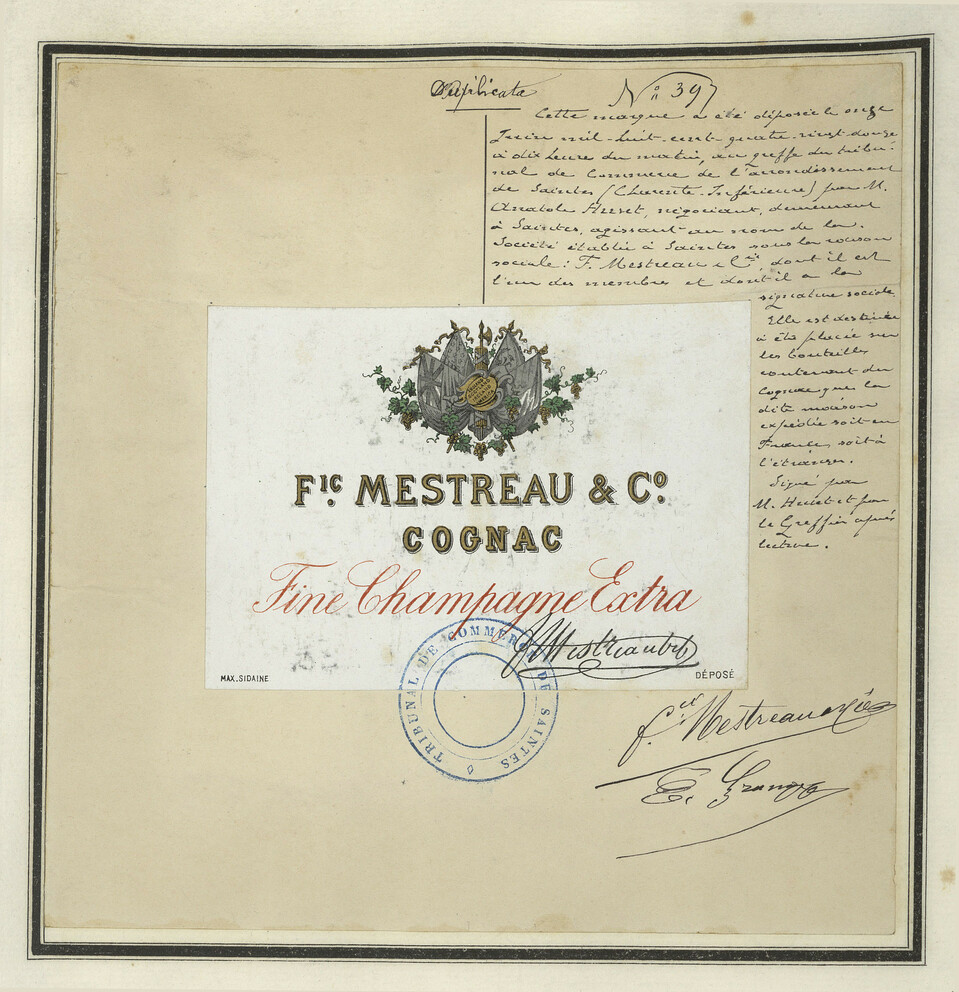 Duplicata
N° 397
Cette marque a été déposée le onze
Juin mil-huit-cent-quatre-vingt-douze
à dix heure du matin, au greffe du tribu-
nal de Commerce de l'arrondissement
de Saintes (Charente-Inférieure) par M.
Anatole Huvet, négociant, demeurant
à Saintes, agissant au nom de la
Société établie à Saintes sous la raison
sociale: F. Mestreau & Cie, dont il est
l'un des membres et dont il a la
signature sociale.
Elle est destinée
à été placée sur
les bouteilles
contenant du
Cognac que la
dite maison
expédie soit en
France, soit à
l'étranger.
Signé par
M. Huvet et par
le Greffier après
lecture.
FIC. MESTREAU & CO.
COGNAC
Fine Champagne Extra
MAX. SIDAINE
DÉPOSÉ
TRIBUNAL DE COMMERCE DE SAINTES
F. cic Mestreau & Cie